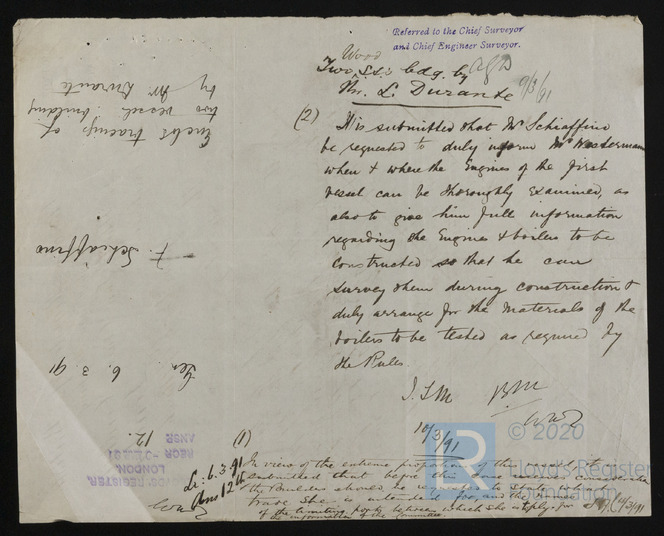 Referred to the Chief Surveyor
and Chief Engineer Surveyor.
Wood
Two S.s. bdg. by
Mr. L. Durante
9/3/91
(2) It is submitted that Mr Schiaffino
be requested to duly inform Mr Westerman
when & where the Engines of the first
vessel can be thoroughly examined, as
also to give him full information
regarding the Engines & boilers to be
constructed so that he can
survey them during construction &
duly arrange for the materials of the
boilers to be tested as required by
the Rules.
10/3/91
(1)
In view of the extreme proportions of this vessel it is
submitted that before this case receives consideration
the Builders should be requested to state what
trade she is intended for, and the names
of the limiting ports between which she is to ply, for
the information of the Committee.
Encls tracings of
two vessels building
by Mr Durante
F. Schiaffino
Gen. 6. 3. 91
12.
LLOYD'S REGISTER,
LONDON.
ANSD
© 2020
Lloyd's Register
Foundation